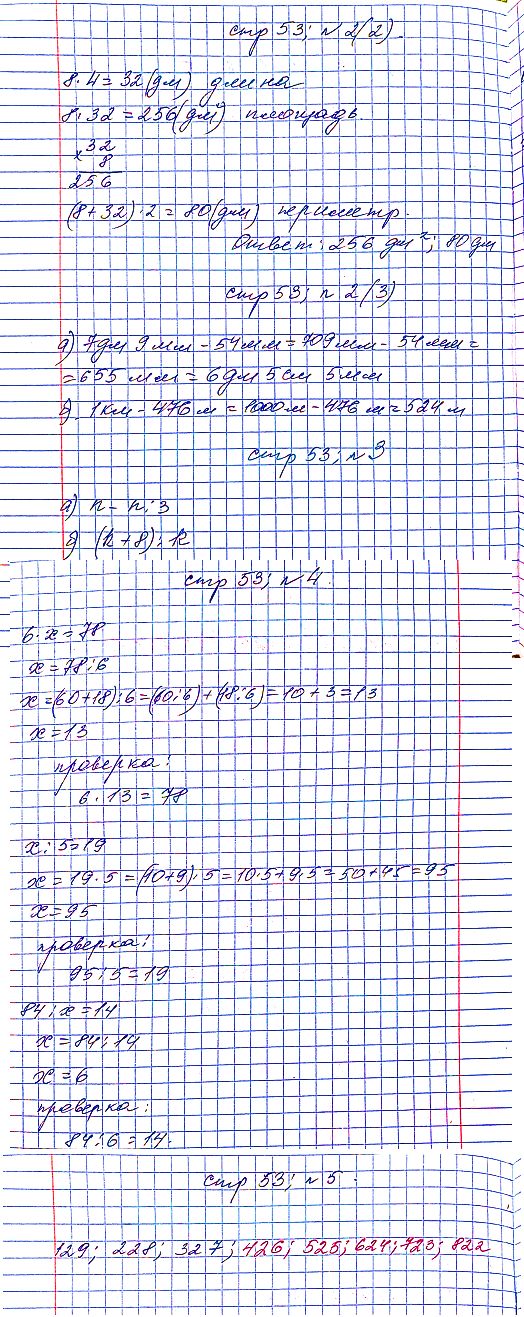 стр 53; № 2(2).
8·4=32(дм) длина
8·32=256(дм²) площадь
×32
8
256
(8+32)·2=80(дм) периметр.
Ответ: 256 дм²; 80 дм
стр 53; № 2(3)
а) 7дм 9мм - 54мм = 709мм - 54мм =
= 655 мм = 6дм 5см 5мм
б) 1км - 476м = 1000м - 476м = 524м
стр 53; № 3
а) n - n:3
б) (k+8):k
стр 53; № 4.
6·x=78
x=78:6
x=(60+18):6=(60:6)+(18:6)=10+3=13
x=13
проверка:
6·13=78
x:5=19
x=19·5=(10+9)·5=10·5+9·5=50+45=95
x=95
проверка:
95:5=19
84:x=14
x=84:14
x=6
проверка:
84:6=14.
стр 53; № 5.
129; 228; 327; 426; 525; 624; 723; 822